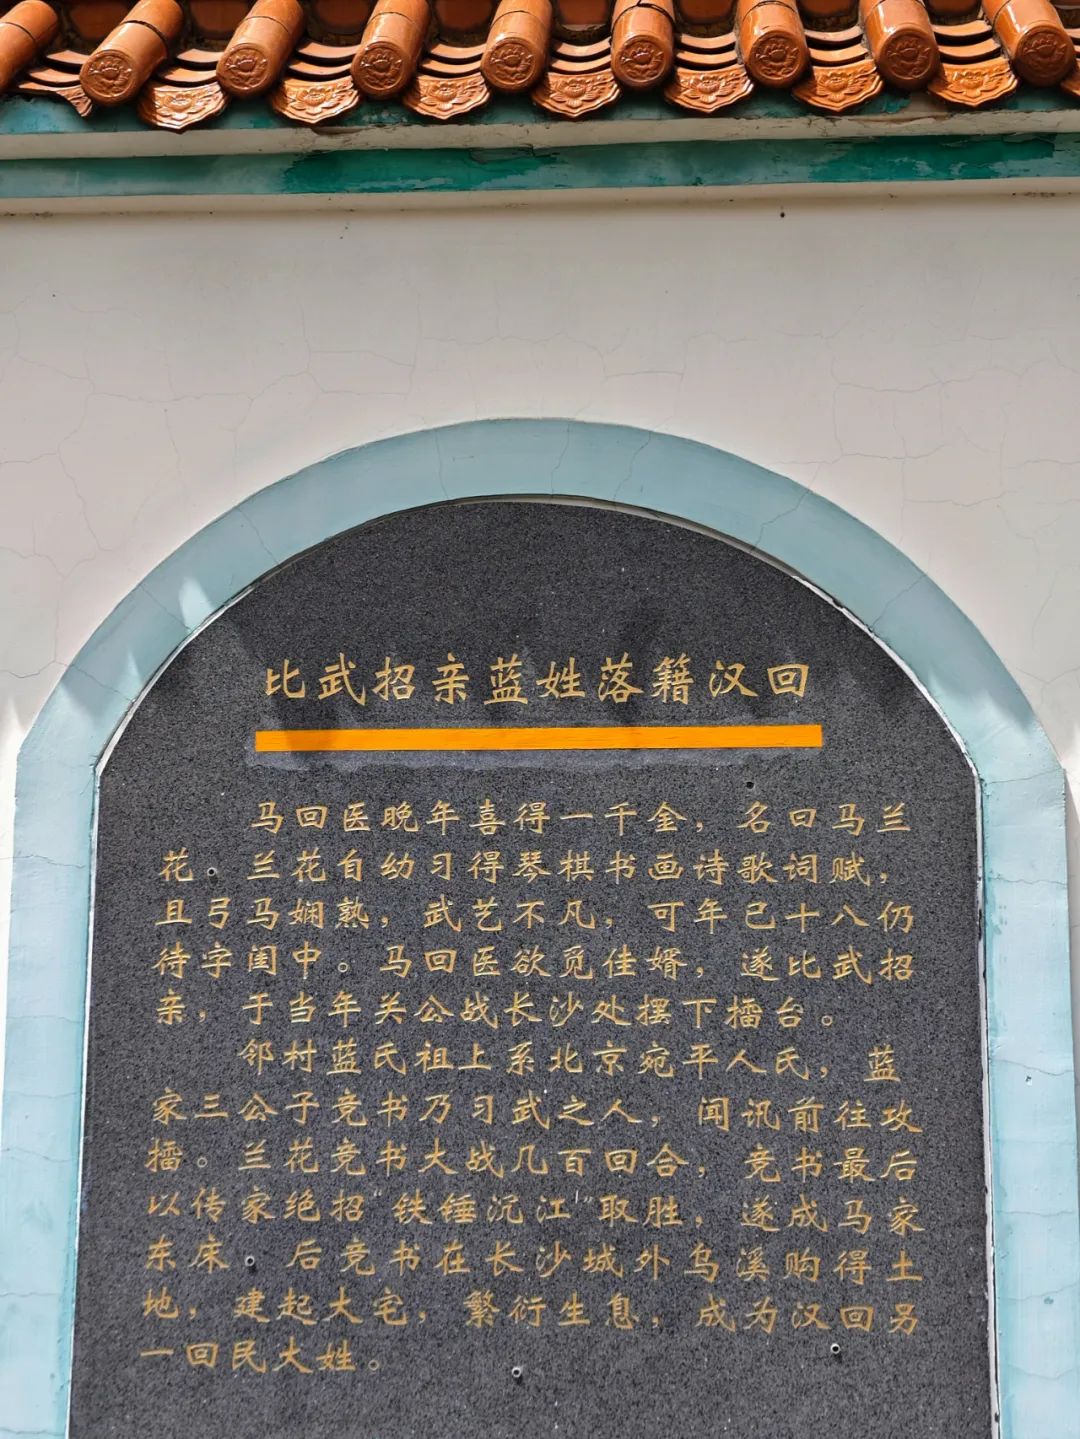 比武招亲蓝姓落籍汉回
马回医晚年喜得一千金，名曰马兰
花。兰花自幼习得琴棋书画诗歌词赋，
且弓马娴熟，武艺不凡，可年已十八仍
待字闺中。马回医欲觅佳婿，遂比武招
亲，于当年关公战长沙处摆下擂台。
邻村蓝氏祖上系北京宛平人氏，蓝
家三公子竞书乃习武之人，闻讯前往攻
擂。兰花竞书大战几百回合，竞书最后
以传家绝招“铁锤沉江”取胜，遂成马家
东床。后竞书在长沙城外乌溪购得土
地，建起大宅，繁衍生息，成为汉回另
一回民大姓。